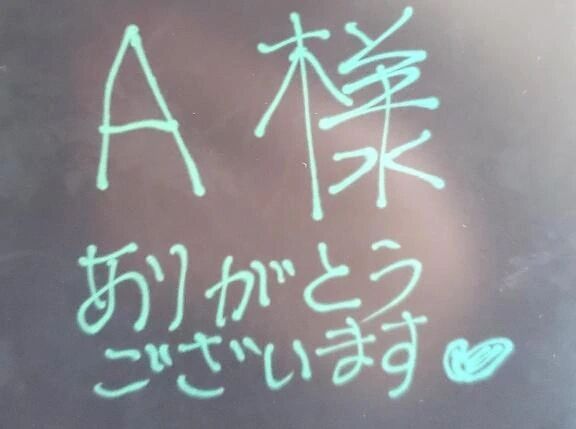 A 様
ありがとう
ございます♥